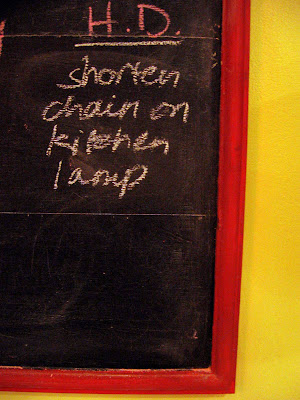 H.D.
shorten
chain on
kitchen
lamp